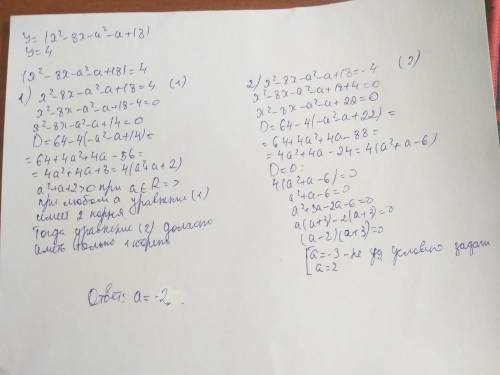 y=|x²-8x-a²-a+18|
y=4
|x²-8x-a²-a+18|=4
1) x²-8x-a²-a+18=4 (1)
x²-8x-a²-a+18-4=0
x²-8x-a²-a+14=0
D=64-4(-a²-a+14)=
=64+4a²+4a-56=
=4a²+4a+8=4(a²+a+2)
a²+a+2>0 при a∈R =>
при любом a уравнение (1)
имеет 2 корня
Тогда уравнение (2) должно
иметь только 1 корень
2) x²-8x-a²-a+18=-4 (2)
x²-8x-a²-a+18+4=0
x²-8x-a²-a+22=0
D=64-4(-a²-a+22)=
=64+4a²+4a-88=
=4a²+4a-24=4(a²+a-6)
D=0:
4(a²+a-6)=0
a²+a-6=0
a²+3a-2a-6=0
a(a+3)-2(a+3)=0
(a-2)(a+3)=0
[a=-3 - не уд условию задачи
a=2
Ответ: a=-2.